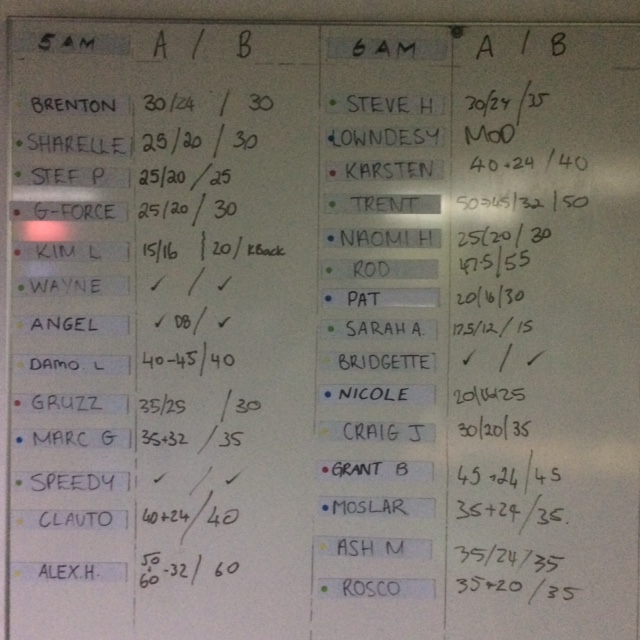 5 AM A / B
BRENTON 30/24 / 30
SHARELLE 25/20 / 30
STEF P 25/20 / 25
G-FORCE 25/20 / 30
KIM L 15/16 } 20 / KBack
WAYNE ✓ / ✓
ANGEL ✓ DB / ✓
DAMO. L 40-45 / 40
GRUZZ 35/25 / 30
MARC G 35+32 / 35
SPEEDY ✓ / ✓
CLAUTO 40+24 / 40
ALEX.H. 50 60 -32 / 60
6 AM A / B
STEVE H 30/24 / 35
LOWNDESY MOD
KARSTEN 40+24 / 40
TRENT /32 / 50
NAOMI H 25/20 / 30
ROD 47.5/55
PAT 20/16/30
SARAH A. 17.5/12 / 15
BRIDGETTE ✓ / ✓
NICOLE
CRAIG J 30/20/35
GRANT B 45+24 / 45
MOSLAR 35+24 / 35.
ASH M 35/24/35
ROSCO 35+20 / 35